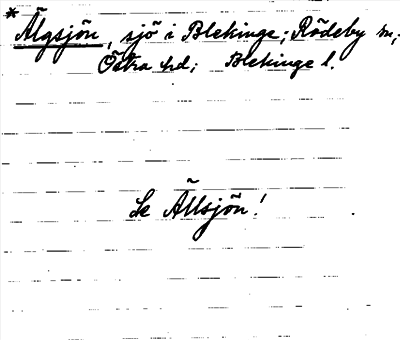 * Älgsjön, sjö i Blekinge; Rödeby sn,
Östra hd; Blekinge l.
Se Ällsjön!